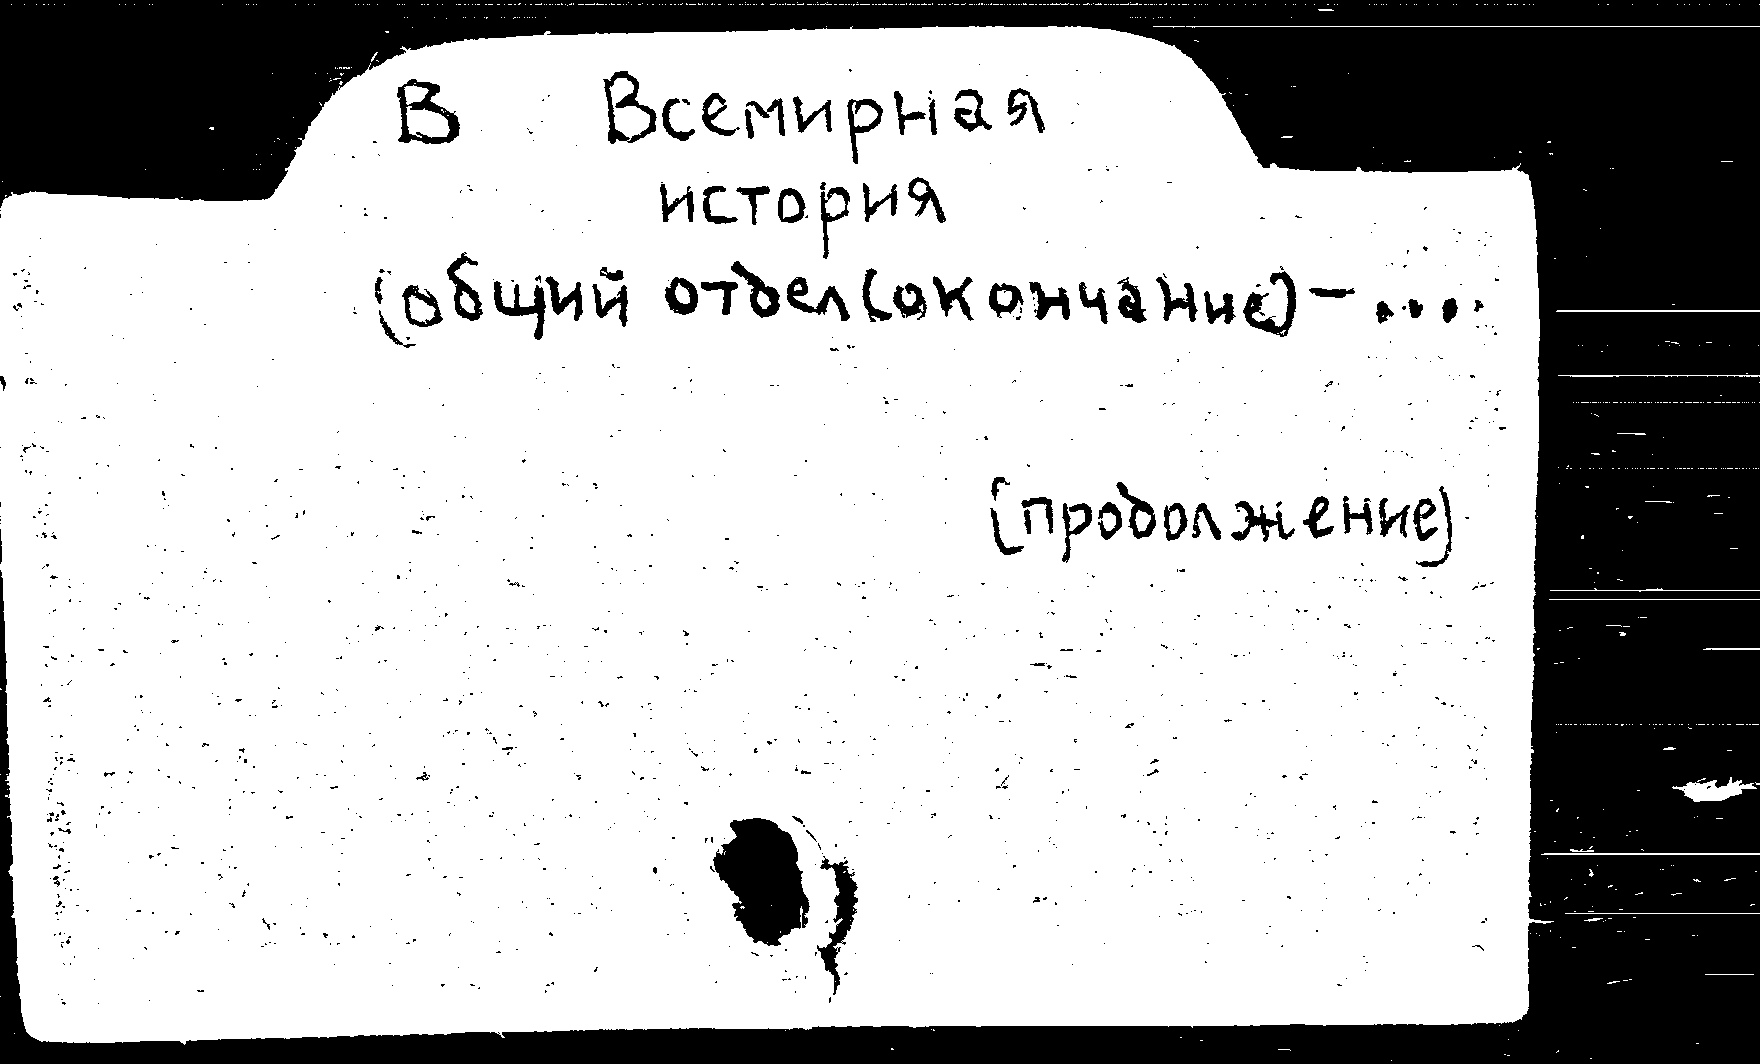 В Всемирная
история
(общий отдел(окончание) – ....
(продолжение)